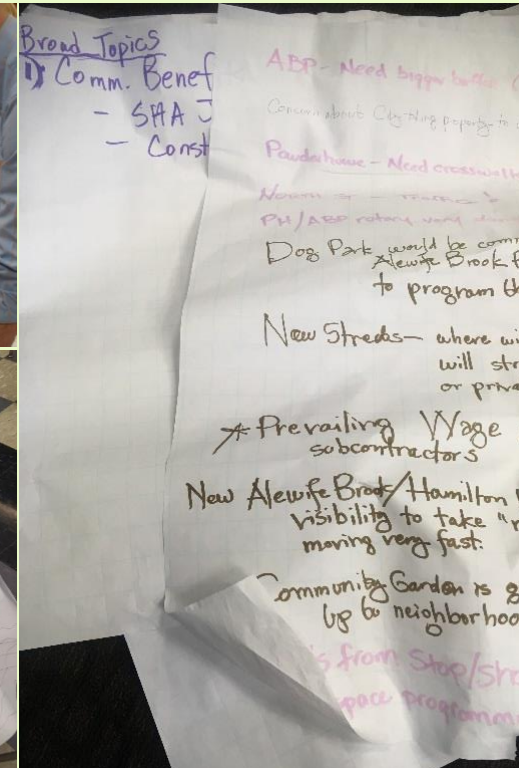 Broad Topics
1) Comm. Benef
- SHA
- Const
ABP - Need bigger buffer
Concern about City property in
Powderhouse - Need crosswalk
PH/ABP rotary very
Dog Park would be comm
Alewife Brook
to program th
New Streets - where wi
will str
or priva
* Prevailing Wage
subcontractors
New Alewife Brook/Hamilton
visibility to take "r
moving very fast.
Community Garden is g
up to neighborhoo
s from Stop/Sho
pace programm